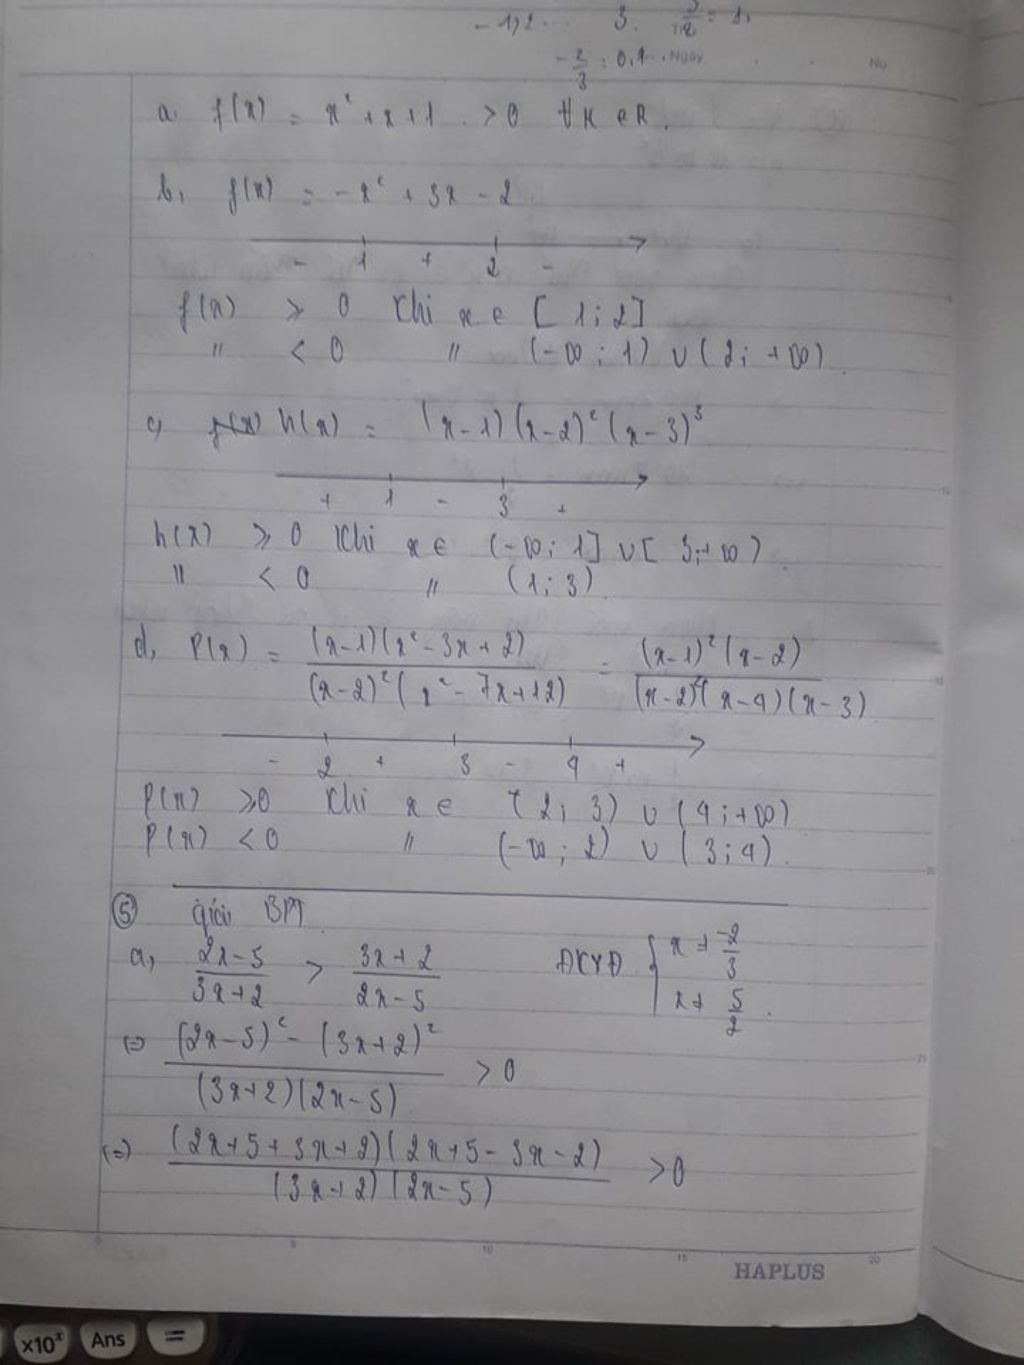 -1,2... 3. 5/2 = 1,
-2/3 = 0,1... Ngày No
a. f(x) = x² + x + 1 > 0 ∀x ∈ R.
b, f(x) = -x² + 3x - 2
- 1 + 2 -
f(x) ⩾ 0 Khi x ∈ [1; 2]
" < 0 " (-∞; 1) ∪ (2; +∞).
c, h(x) = (x-1)(x-2)²(x-3)³
+ 1 - 3 +
h(x) ⩾ 0 Khi x ∈ (-∞; 1] ∪ [3; +∞).
" < 0 " (1; 3).
d, P(x) = (x-1)(x²-3x+2) / (x-2)²(x²-7x+12) = (x-1)²(x-2) / (x-2)²(x-4)(x-3)
- 2 + 3 - 4 +
P(x) ⩾0 Khi x ∈ (2; 3) ∪ (4; +∞)
P(x) < 0 " (-∞; 2) ∪ (3; 4).
⑤ giải BPT
a, (2x-5)/(3x+2) > (3x+2)/(2x-5) ĐKXĐ { x ≠ -2/3
x ≠ 5/2.
⇔ ((2x-5)² - (3x+2)²) / (3x+2)(2x-5) > 0
⇔ (2x+5+3x+2)(2x+5-3x-2) / (3x+2)(2x-5) > 0
0 5 10 15 20
HAPLUS
×10ˣ Ans =